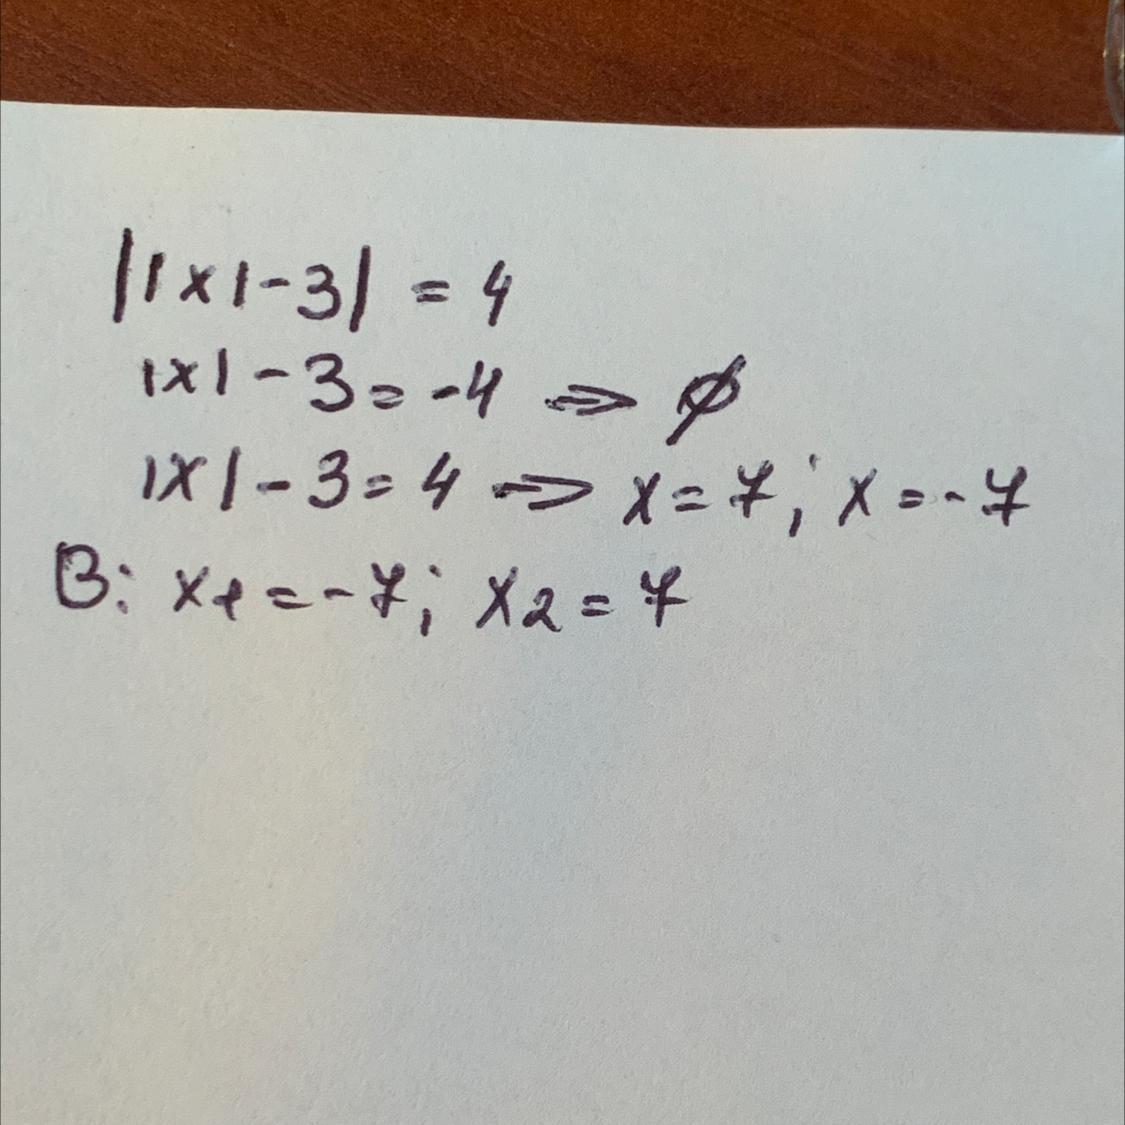 ||x|-3| = 4
|x| - 3 = -4 => ∅
|x| - 3 = 4 => x = 7; x = -7
В: x1 = -7; x2 = 7